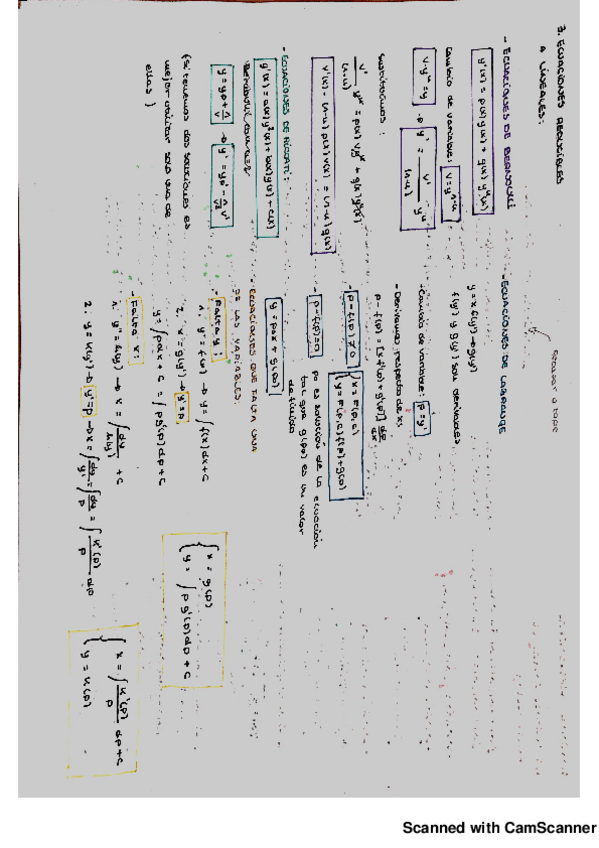 3. ECUACIONES REDUCIBLES
A LINEALES:
- ECUACIONES DE BERNOULLI
y'(x) = p(x) y(x) + q(x) yⁿ(x)
Cambio de variable: v = y¹⁻ⁿ
v·yⁿ = y → y' = v'/(1-n) yⁿ
Sustituimos:
v'/(1-n) yⁿ = p(x) v yⁿ + q(x) yⁿ(x)
v'(x) - (1-n) p(x) v(x) = (1-n) q(x)
- ECUACIONES DE RICCATI:
y'(x) = a(x) y²(x) + b(x) y(x) + c(x)
Bernoulli con n=2
y = yp + 1/v → y' = yp' - 1/v² v'
(si tenemos dos soluciones es
mejor utilizar solo una de
ellas)
- ECUACIONES DE LAGRANGE
y = x f(y') + g(y')
f(y') y g(y') son derivables
- Cambio de variable: p = y'
- Derivamos respecto de x:
p - f(p) = [x f'(p) + g'(p)] dp/dx
- p - f(p) ≠ 0
- p - f(p) = 0
p₀ es solución de la ecuación
tal que g(p₀) es un valor
definido
y = p₀x + g(p₀)
- ECUACIONES QUE FALTA UNA
DE LAS VARIABLES:
- Falta y:
1. y' = f(x) → y = ∫f(x)dx + C
2. x = g(y') → y' = p
y = ∫p dx + C = ∫p g'(p) dp + C
{ x = g(p)
y = ∫p g'(p) dp + C
- Falta x:
2. y = h(y') → y' = p → x = ∫dy/y' = ∫dy/p = ∫h'(p)/p dp
{ x = ∫h'(p)/p dp + C
y = h(p)
Scanned with CamScanner